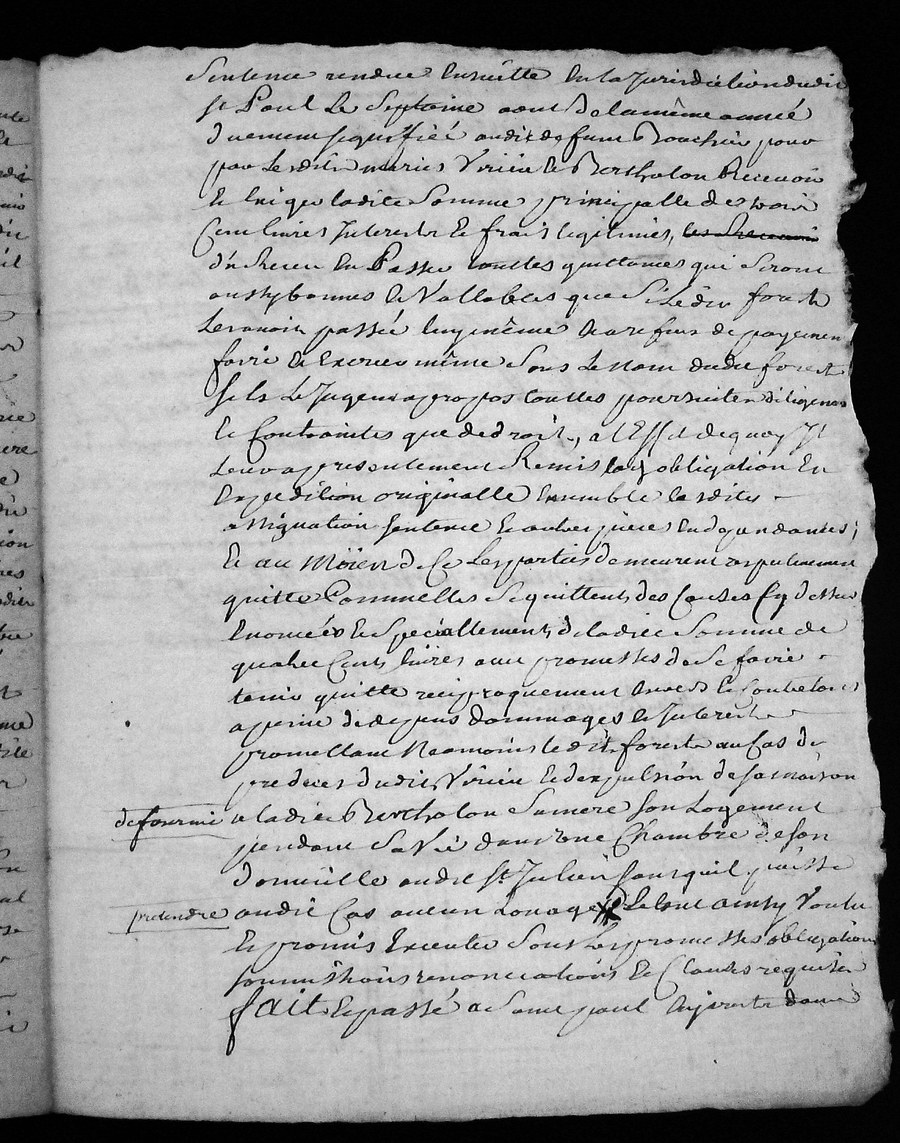 Sentence rendue ensuitte en la Jurisdiction dudit
st Paul le Septieme aout de la même année
duement signiffiée audit defunt Bouchéu pour
par lesdits mariés Virieu et Bertholon Recevoir
et Exiger ladite Somme principalle de trois
Cent livres Interests et frais legitimes, les Recevoir
d'Iceux En Passer touttes quittances qui seront
aussy bonnes et Vallables que si ledit forest
Les avoit passée luy même et au refus de payement
faire et Exercer même sous le nom dudit forest
s'ils le Jugent apropos touttes poursuittes diligences
et Contraintes que de droit, a l'Effet de quoy Il
Leur a presentement Remis lad obligation En
Expedition originalle Ensemble lesdites
assignation sentence et autres pieces En dependantes;
Et au Moïen de Ce Les parties demeurent respectivement
quitte Comm'elles se quittent des Causes Cy dessus
Enoncées et Speciallement de ladite Somme de
quatre Cents livres avec promesses de se faire
tenir quitte reciproquement Envers et Contre tous
a peine de depens dommages et Interests
promettant Neamoins ledit forest au Cas de
predeces dudit Virieu et d'expulsion de sa maison
de fournir a ladite Bertholon sa mere son Logement
pendant sa Vie dans une Chambre de son
domicille audit st Julien sans quil puisse
pretendre audit Cas aucun Louage, le tout ainsy Voulu
Et promis Executer Sous Les promesses obligations
soumissions renonciations et Clauses requises
fait et passé a Saint paul En jarest dans